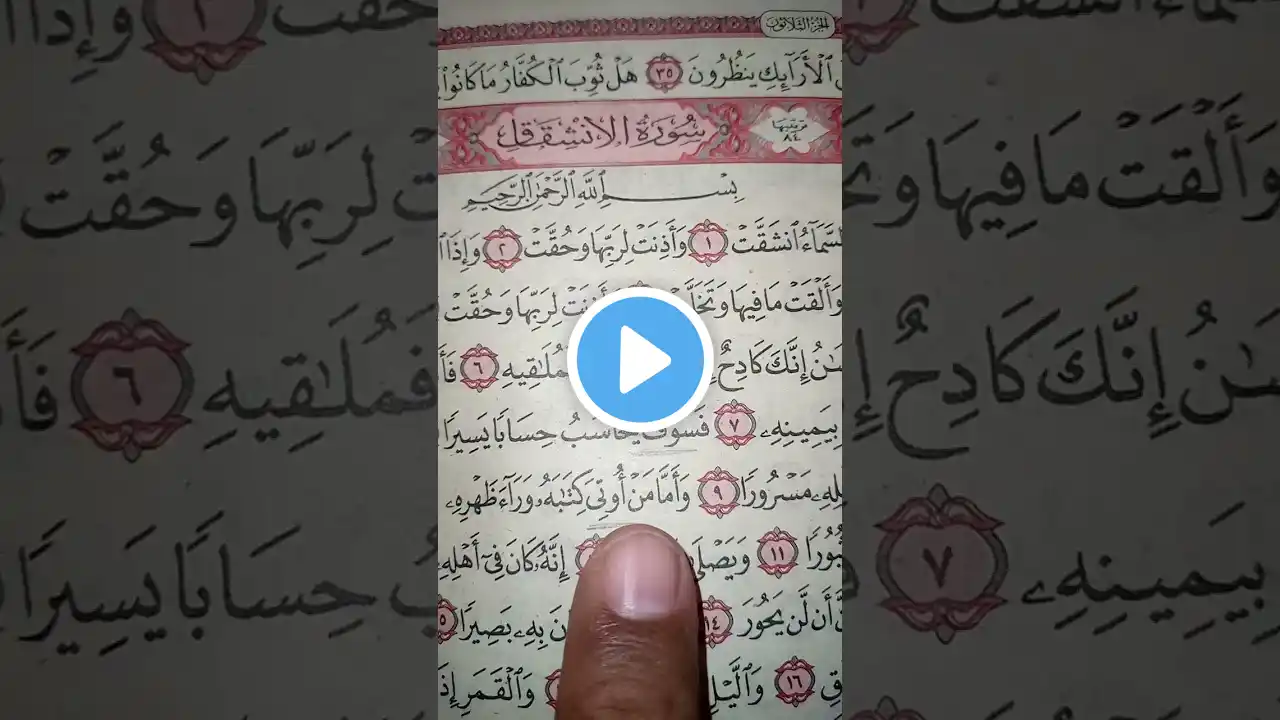 الجزء الثلاثون
ٱلْأَرَآئِكِ يَنظُرُونَ ٣٥ هَلْ ثُوِّبَ ٱلْكُفَّارُ مَا كَانُوا۟
سُورَةُ الانْشِقَاقِ
ترتيبها ٨٤
بِسْمِ ٱللَّهِ ٱلرَّحْمَٰنِ ٱلرَّحِيمِ
ٱلسَّمَآءُ ٱنشَقَّتْ ١ وَأَذِنَتْ لِرَبِّهَا وَحُقَّتْ ٢ وَإِذَا
وَأَلْقَتْ مَا فِيهَا وَتَخَلَّتْ وَأَذِنَتْ لِرَبِّهَا وَحُقَّتْ
إِنَّكَ كَادِحٌ فَمُلَٰقِيهِ ٦
بِيَمِينِهِۦ ٧ فَسَوْفَ يُحَاسَبُ حِسَابًا يَسِيرًا
مَسْرُورًا ٩ وَأَمَّا مَنْ أُوتِىَ كِتَٰبَهُۥ وَرَآءَ ظَهْرِهِۦ
١١ وَيَصْلَىٰ إِنَّهُۥ كَانَ فِىٓ أَهْلِهِۦ
أَن لَّن يَحُورَ ١٤ بِهِۦ بَصِيرًا
١٦ وَٱلَّيْلِ وَٱلْقَمَرِ إِذَا